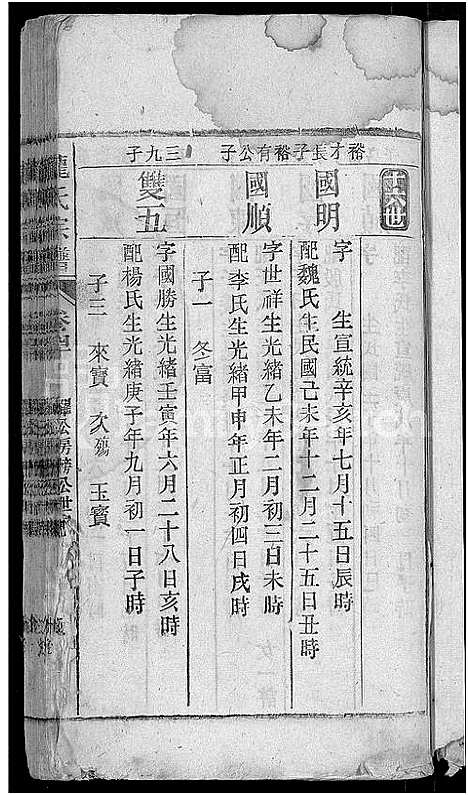 十六世
裕才長子
國明
字 生宣統辛亥年七月十五日辰時
配魏氏生民國己未年十二月二十五日丑時
裕有公子
國順
字世祥生光緒乙未年二月初三日未時
配李氏生光緒甲申年正月初四日戌時
子一 冬富
三九子
雙五
字國勝生光緒壬寅年六月二十八日亥時
配楊氏生光緒庚子年九月初一日子時
子三 來寶 次殤 玉寶
氏宗譜